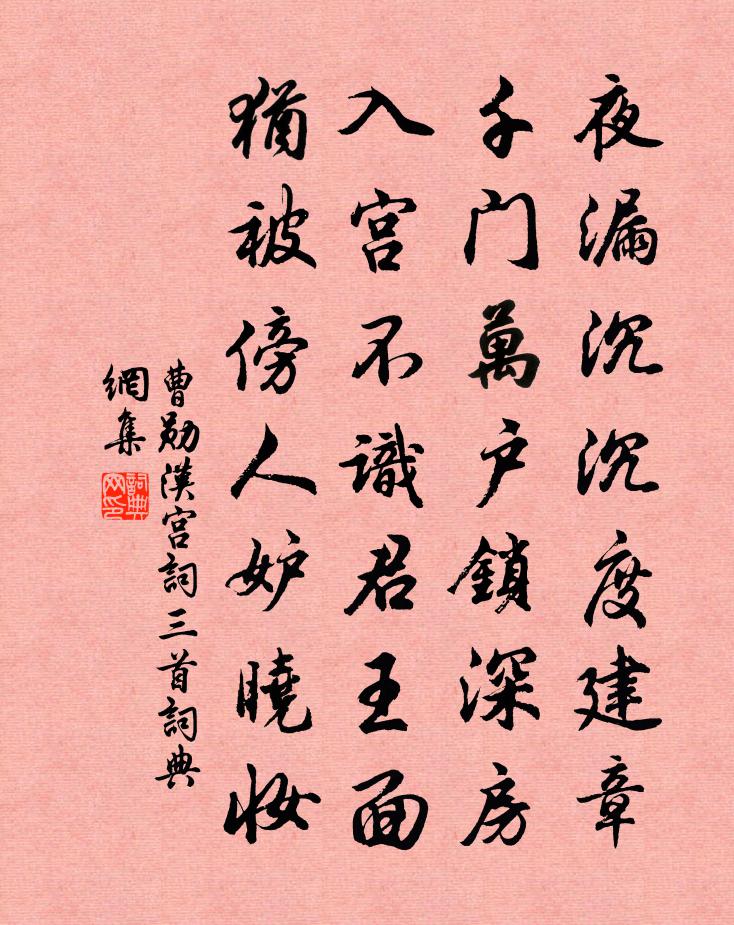 夜漏沉沉度建章
千门萬户鎖深房
入宫不識君王面
猶被傍人妒曉妝
曹勛漢宫詞三首詞典
網集
詞典
网印